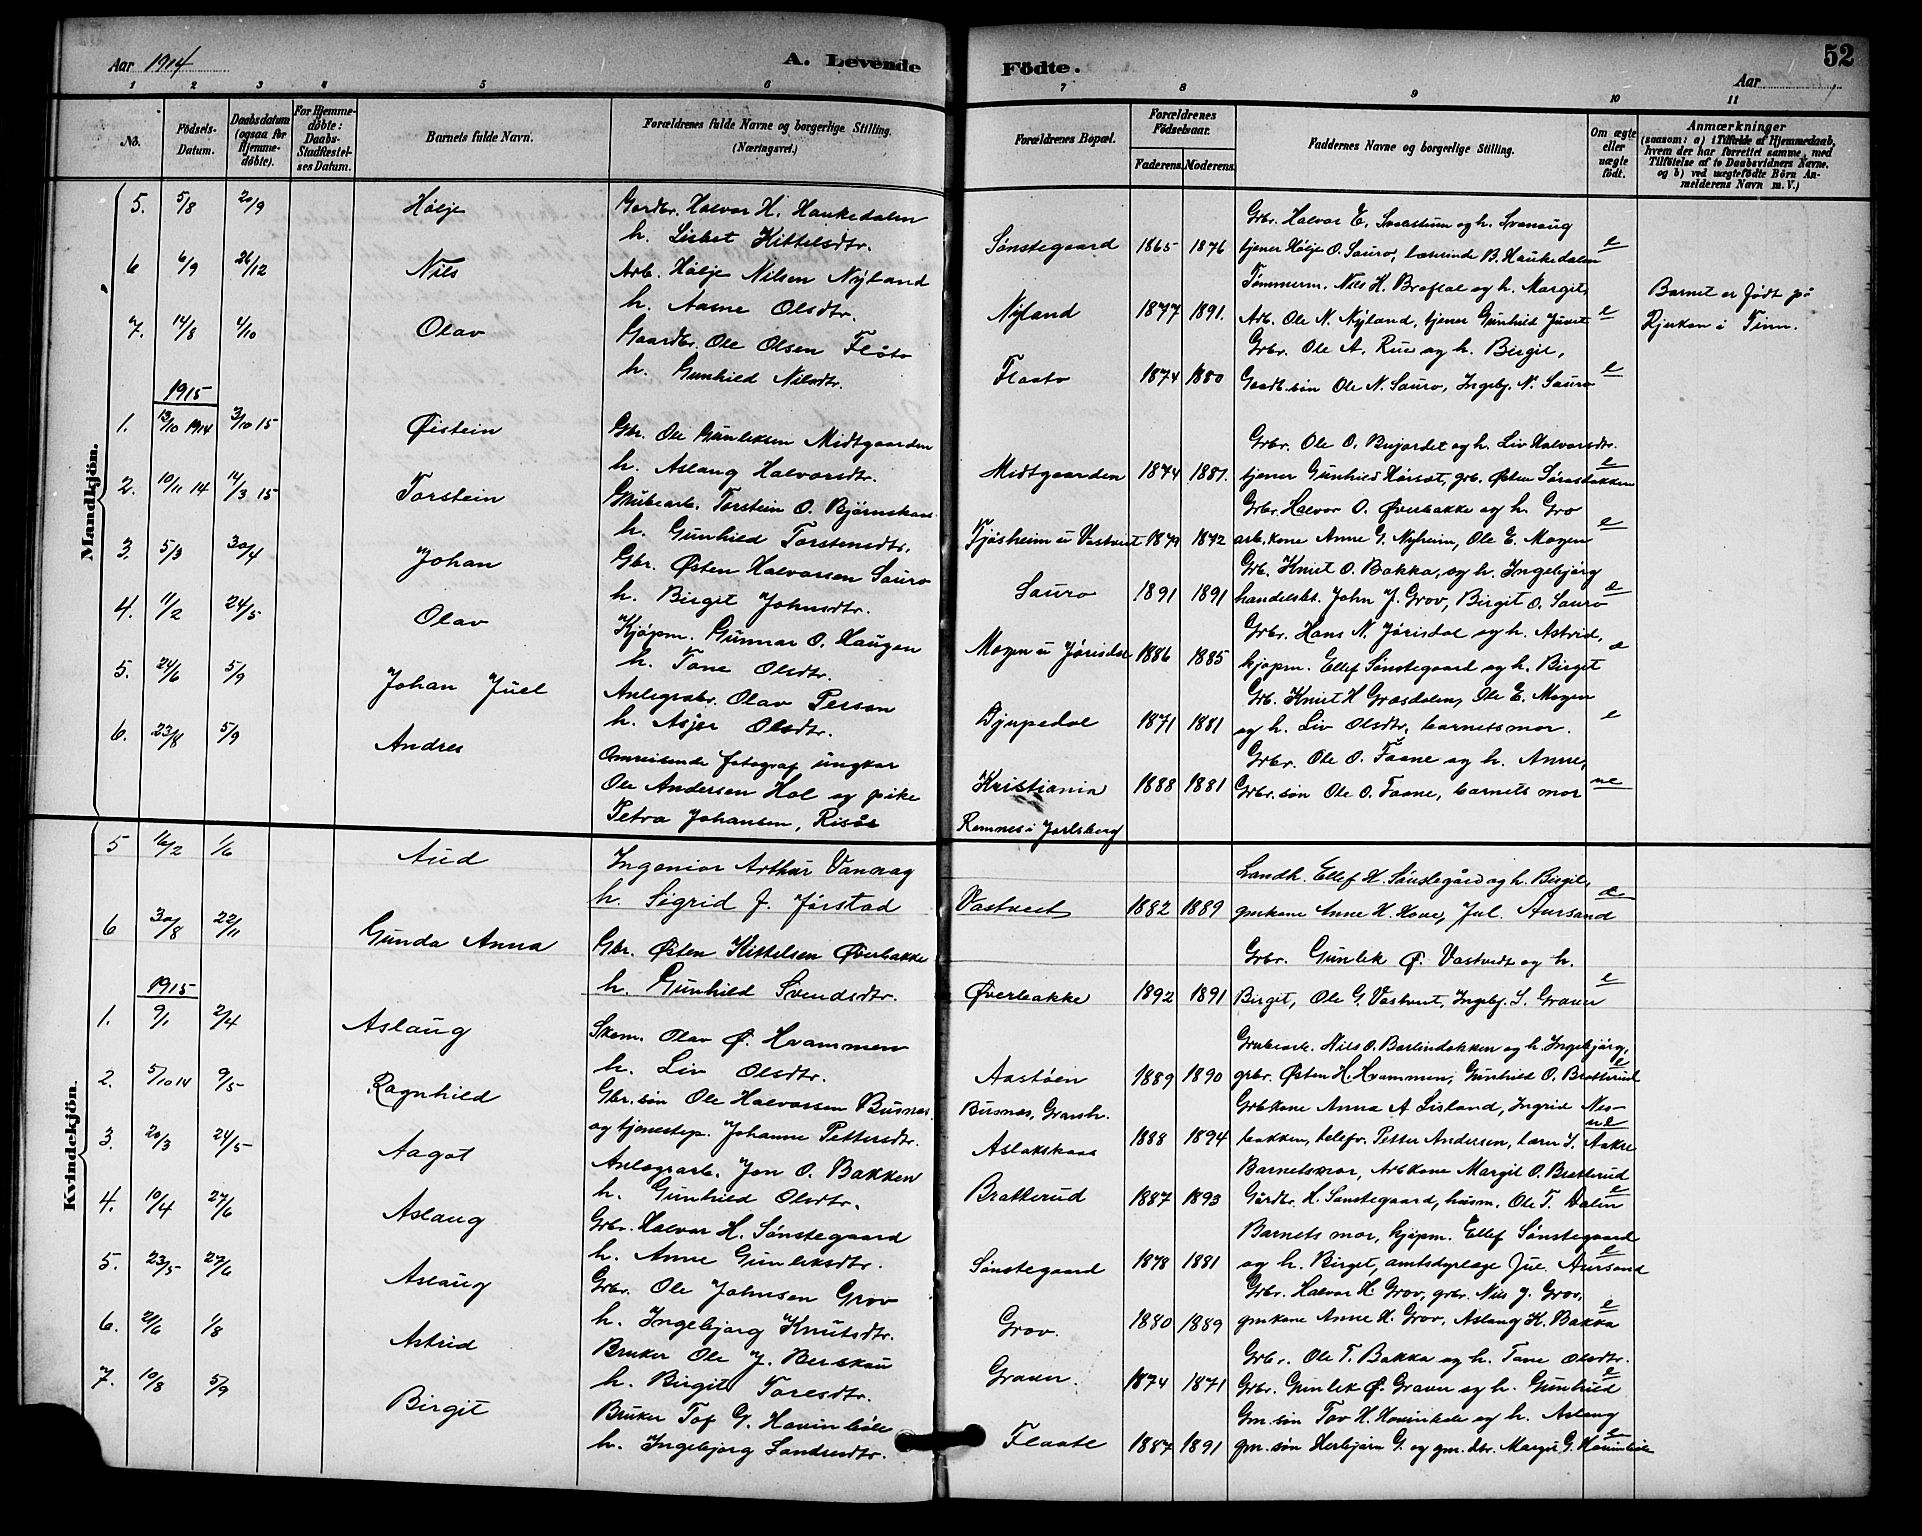 Aar 1914 A. Levende Födte. Aar 52
1 2 3 4 5 6 7 8 9 10 11
No. Födsels-Datum. Daabsdatum (ogsaa for Hjemme-döbte). For Hjemme-döbte: Daabs-Stadfæstel-ses Datum. Barnets fulde Navn. Forældrenes fulde Navne og borgerlige Stilling. (Næringsvei.) Forældrenes Bopæl. Forældrenes Födselsaar. Faderens. Moderens. Faddernes Navne og borgerlige Stilling. Om ægte eller uægte födt. Anmærkninger (saasom: a) i Tilfælde af Hjemmedaab, hvem der har forrettet samme, med Tilföielse af to Daabsvidners Navne, og b) ved uægtefödte Börn An-melderens Navn m. V.)
Mandkjön.
5. 5/8 20/9 Hølje Gardbr. Halvor H. Haukedalen
h. Lisbet Kittelsdtr.
Sønstegaard 1865 1876 Grbr. Halvor E. og h. Svanaug
tjener Hølje O. Sauro, lærerinde B. Haukedalen e
6 6/9 26/12 Nils Arb. Hølje Nilsen Nyland
h. Aasne Olsdtr.
Nyland 1877 1891. Tømmerm. Nils H. og h. Margit,
Arb. Ole N. Nyland, tjener Gunhild Juvet e
Barnet er født på
Rjukan i Tinn.
7. 14/8 4/10 Olav Gaardbr. Ole Olsen Fløto
h. Gunhild Nilsdtr.
Flaato 1874 1880 Grbr. Ole A. Rue og h. Birgit,
Gaardb. søn Ole N. Sauro, Ingebj. N. Sauro e
1915
1. 13/10 1914 3/10 15 Øistein Gbr. Ole Gunleksen Midtgaarden
h. Aslaug Halvorsdtr.
Midtgaarden 1874 1881. Grbr. Ole O. Bujordet og h. Liv Halvorsdtr.
tjener Gunhild grb. Østen e
2. 10/11 14 14/3 15 Torstein Grubearb. Torstein O. Bjørnskaas
h. Gunhild Torstensdtr.
Tjøsheim u Vastveit 1879 1872 Grbr. Halvor O. Øverbakke og h. Gro
arb. kone Anne G. Nyheim, Ole E. Mogen e
3. 5/3 30/4 Johan Gbr. Østen Halvorsen Sauro
h. Birgit Johnsdtr.
Sauro 1891 1891 Grb. Knut O. Bakka, og h. Ingebjørg
handelsbt. John J. Grov, Birgit O. Sauro e
4. 11/2 24/5 Olav Kjøpm. Gunnar O. Haugen
h. Tone Olsdtr.
Mogen u Jørisdal 1886 1885 Grbr. Hans N. Jørisdal og h. Astrid,
kjøpm. Ellef Sønstegaard og h. Birget e
5. 24/6 5/9 Johan Juel Anlegsabr. Olav Person
h. Asjer Olsdtr.
Djupedal 1871 1881 Grb. Knut H Grasdalen, Ole E. Mogen
og h. Liv Olsdtr, barnets mor. e
6. 23/8 5/9 Andres Omreisende fotograf ungkar
Ole Andersen Hol og pike
Petra Johansen, Risør
Kristiania
Ramnes i Jarlsberg
1888 1881 Grbr. Ole O. Faane og h. Anne,
Grbr. søn Ole O. Faane, barnets mor ue
Kvindekjön.
5 16/2 1/6 Aud Ingeniør Arthur Vanvag
h. Sigrid J. Jørstad
Vastveit 1882 1889 Landh. Ellef H. Sønstegård og h. Birgit,
gmkone Anne H. Hove, Jul. Aursand e
6 30/8 22/11 Gunda Anna Gbr. Østen Kittelsen Øverbakke
h. Gunhild Svendsdtr.
Øverbakke 1892 1891 Grbr. Gunlek Ø. Vastvedt og h.
Birgit, Ole G. Vastveit, Ingebj. S. Graver e
1915
1. 9/1 2/4 Aslaug Skom. Olav Ø. Hvammen
h. Liv Olsdtr.
Aastøen 1889 1890 Grubearb. Nils O. Barlindokken og h. Ingebjørg,
grbr. Østen H. Hvammen, Gunhild O. Bratterud e
2. 5/10 14 9/5 Ragnhild Gbr. søn Ole Halvorsen Busnes
og tjenestep. Johanne Pettersdtr.
Busnes, Gransh.
Aslakskaas
1888 1894 Grbkone Anna A Lisland, Ingrid Nes-
bakken, telefr. Petter Andersen, lærer S. Aakre ue
3. 20/3 24/5 Aagot Anlegsarb. Jon O. Bakken
h. Gunhild Olsdtr.
Bratterud 1887 1893 Barnets mor, Arbkone Margit O. Bratterud
Gårdbr. H. Sønstegaard, husm. Ole T. Dalen e
4. 10/4 27/6 Aslaug Grbr. Halvor H. Sønstegaard
h. Anne Gunleksdtr.
Sønstegaard 1878 1881 Barnets mor, kjøpm. Ellef Sønstegaard
og h. Birgit, amtsdyrlæge Jul. Aursand e
5. 23/5 27/6 Aslaug Grbr. Ole Johnsen Grov
h. Ingebjørg Knutsdtr.
Grov. 1880 1889 Grbr. Halvor H. Grov, grbr. Nils J. Grov,
gmkone Anne H. Grov, Aslaug K. Bakka e
6. 2/6 1/8 Astrid Bruker Ole J. Berskau
h. Birgit Toresdtr.
Graver. 1874 1871 Grbr. Ole T. Bakka og h. Tone Olsdtr.
Grbr. Gunlek Ø. Graver og h. Gunhild e
7. 10/8 5/9 Birgit Bruker Tof G. Hovinbøle
h. Ingebjørg Sandersdtr.
Flaate 1887 1891 Gm. søn Tov H. Hovinbøle og h. Aslaug
gm. søn Herbjørn G. og gm. dtr. Margit G. Hovinbøle e